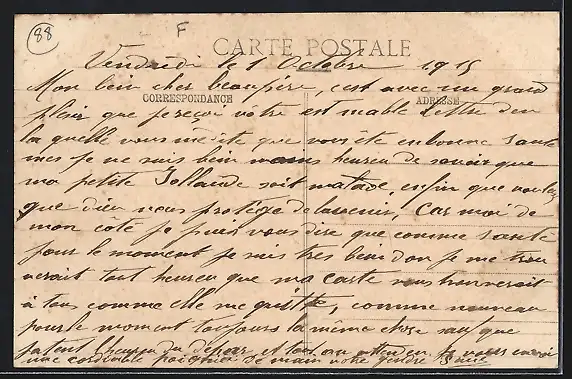 88
F
CARTE POSTALE
Vendredi le 1 Octobre 1915
CORRESPONDANCE
ADRESSE
Mon bein cher beaupère, c'est avec un grand
plésir que je reçoi vôtre estimable lettre den
la quelle vous me dite que vous ête en bonne santé
mes je ne suis bein heureu de savoir que
ma petite Jollande soit malade, enfin que voulez
que dieu nous protége de l'avenir, car moi de
mon côté je puis vous dire que comme santé
pour le moment je suis tres bein don je me trou
verait tout heureu que ma carte vous trouverait
à tous comme elle me quitte, comme nouveau
pour le moment toujours la même chose sauf que
une cordiale poignée de main votre gendre